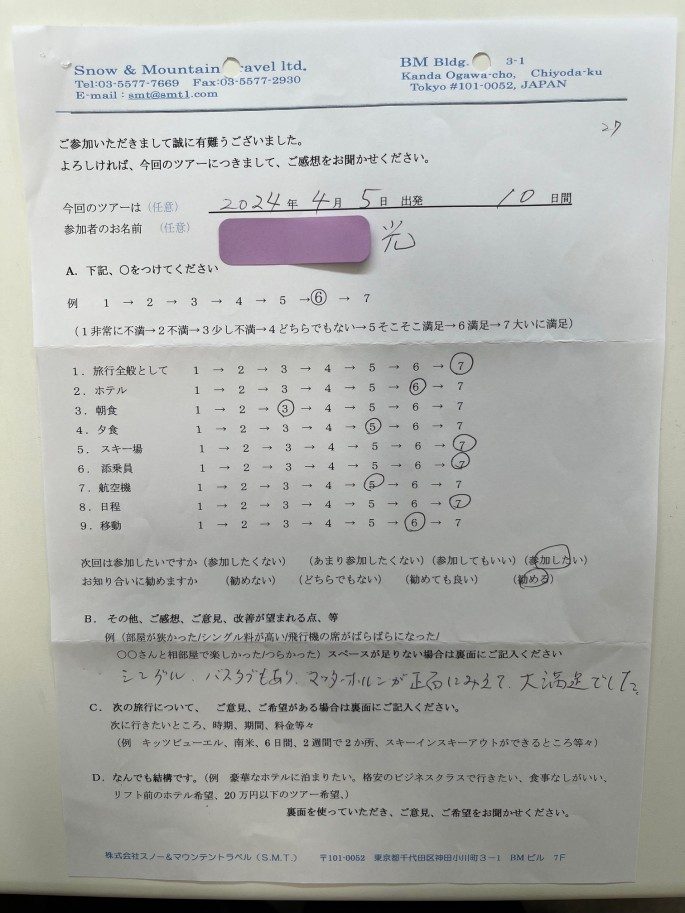 Snow & Mountain ravel ltd.
Tel:03-5577-7669 Fax:03-5577-2930
E-mail : smt@smt1.com
BM Bldg. 3-1
Kanda Ogawa-cho, Chiyoda-ku
Tokyo #101-0052, JAPAN
27
ご参加いただきまして誠に有難うございました。
よろしければ、今回のツアーにつきまして、ご感想をお聞かせください。
今回のツアーは（任意） 2024年 4月 5日 出発 10日間
参加者のお名前 （任意） 光
A. 下記、○をつけてください
例 1 → 2 → 3 → 4 → 5 →⑥ → 7
（1 非常に不満→2 不満→3 少し不満→4 どちらでもない→5 そこそこ満足→6 満足→7 大いに満足）
1. 旅行全般として 1 → 2 → 3 → 4 → 5 → 6 → 7
2. ホテル 1 → 2 → 3 → 4 → 5 → 6 → 7
3. 朝食 1 → 2 → 3 → 4 → 5 → 6 → 7
4. 夕食 1 → 2 → 3 → 4 → 5 → 6 → 7
5. スキー場 1 → 2 → 3 → 4 → 5 → 6 → 7
6. 添乗員 1 → 2 → 3 → 4 → 5 → 6 → 7
7. 航空機 1 → 2 → 3 → 4 → 5 → 6 → 7
8. 日程 1 → 2 → 3 → 4 → 5 → 6 → 7
9. 移動 1 → 2 → 3 → 4 → 5 → 6 → 7
次回は参加したいですか（参加したくない） （あまり参加したくない）（参加してもいい）（参加したい）
お知り合いに勧めますか （勧めない） （どちらでもない） （勧めても良い） （勧める）
B. その他、ご感想、ご意見、改善が望まれる点、等
例（部屋が狭かった/シングル料が高い/飛行機の席がばらばらになった/
○○さんと相部屋で楽しかった/つらかった）スペースが足りない場合は裏面にご記入ください
シングル、バスタブもあり、マッターホルンが正面にみえて、大満足でした。
C. 次の旅行について、 ご意見、ご希望がある場合は裏面にご記入ください。
次に行きたいところ、時期、期間、料金等々
（例 キッツビューエル、南米、6日間、2週間で2か所、スキーインスキーアウトができるところ等々）
D. なんでも結構です。（例 豪華なホテルに泊まりたい。格安のビジネスクラスで行きたい、食事なしがいい、
リフト前のホテル希望、20万円以下のツアー希望、）
裏面を使っていただき、ご意見、ご希望をお聞かせください。
株式会社スノー＆マウンテントラベル（S.M.T.） 〒101-0052 東京都千代田区神田小川町3－1 BMビル 7F